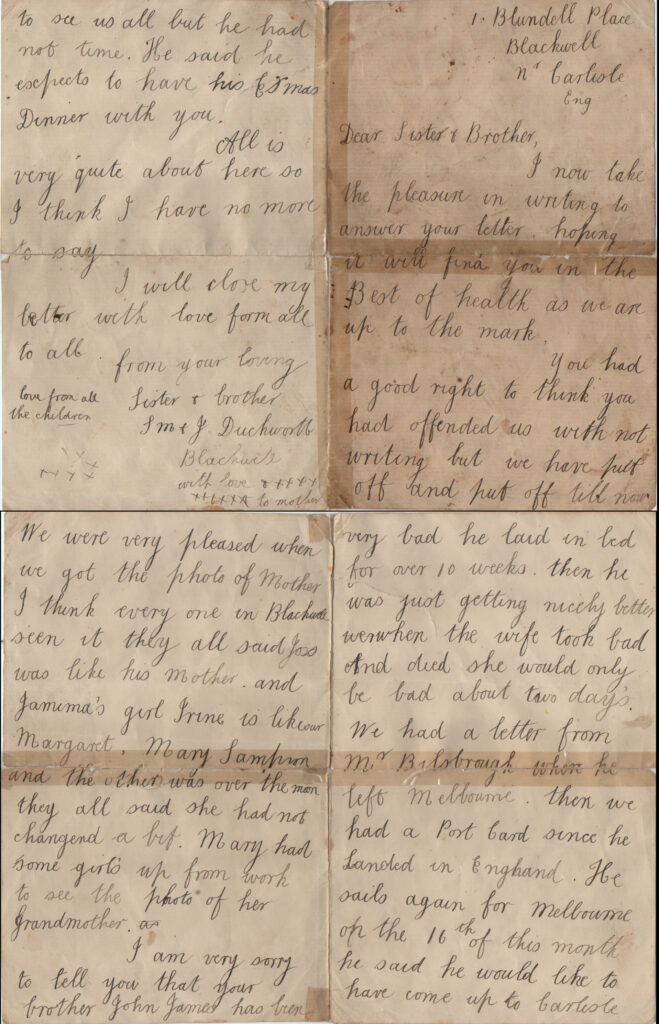 1. Blundell Place
Blackwell
Nr Carlisle
Eng
Dear Sister & Brother,
I now take
the pleasure in writing to
answer your letter. hoping
it will find you in the
Best of health as we are
up to the mark.
You had
a good right to think you
had offended us with not
writing but we have put
off and put off till now
We were very pleased when
we got the photo of Mother
I think every one in Blackwell
seen it they all said Joss
was like his Mother. and
Jamima's girl Irine is like our
Margaret. Mary Sampson
and the other was over the
they all said she had not
changend a bit. Mary had
some girls up from work
to see the photo of her
Grandmother. as
I am very sorry
to tell you that your
brother John James has bien
very bad he laid in bed
for over 10 weeks. then he
was just getting nicely better
when the wife took bad
And died she would only
be bad about two day's.
We had a letter from
Mr Bilsbrough whore he
left Melbourne. then we
had a Port Card since he
Landed in Engkand. He
sails again for Melbourne
on the 16th of this month
he said he would like to
have come up to Carlisle
to see us all but he had
not time. He said he
exspects to have his Xmas
Dinner with you.
All is
very quite about here so
I think I have no more
to say
I will close my
letter with love form all
to all. from your loving
Sister & brother
Sm & J Duckworth
Blackwell
with love & xxxx
xxxxxx to mother
love from all
the children
xxxxxx